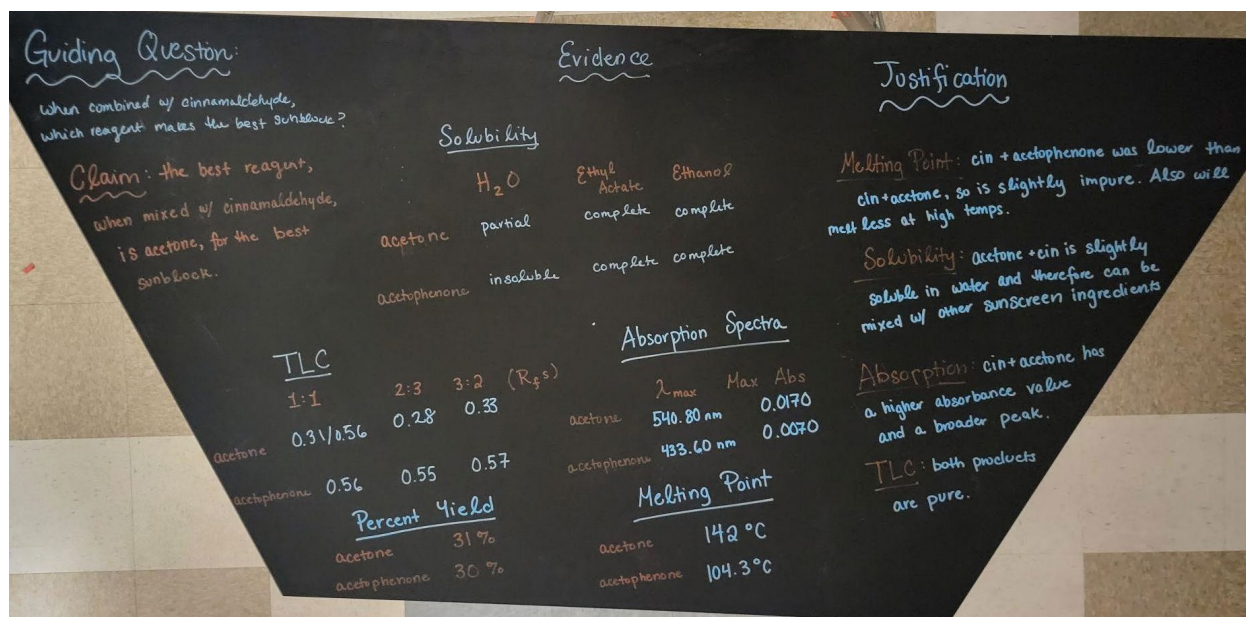 Guiding Question:
when combined w/ cinnamaldehyde,
which reagent makes the best sunblock?
Claim: the best reagent,
when mixed w/ cinnamaldehyde,
is acetone, for the best
sunblock.
Evidence
Solubility
H2O Ethyl Actate Ethanol
acetone partial complete complete
acetophenone insoluble complete complete
TLC
1:1 2:3 3:2 (Rfs)
acetone 0.31/0.56 0.28 0.33
acetophenone 0.56 0.55 0.57
Percent Yield
acetone 31%
acetophenone 30%
Absorption Spectra
λmax Max Abs
acetone 540.80 nm 0.0170
acetophenone 433.60 nm 0.0070
Melting Point
acetone 142 °C
acetophenone 104.3°C
Justification
Melting Point: cin + acetophenone was lower than
cin+acetone, so is slightly impure. Also will
melt less at high temps.
Solubility: acetone +cin is slightly
soluble in water and therefore can be
mixed w/ other sunscreen ingredients
Absorption: cin+ acetone has
a higher absorbance value
and a broader peak.
TLC: both products
are pure.